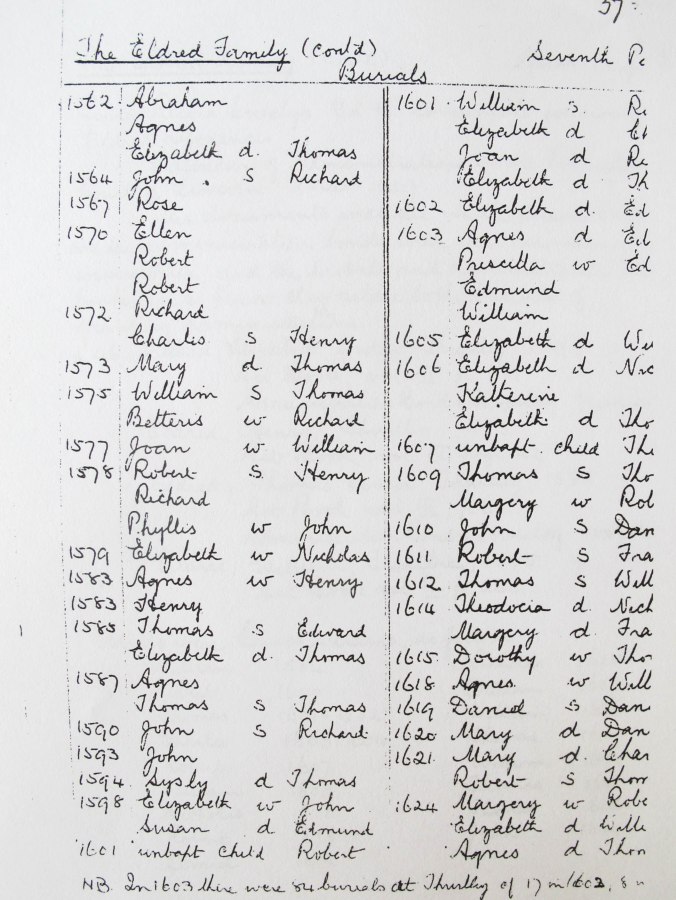 57
The Eldred Family (contd)
Seventh
Burials
1562 Abraham
Agnes
Elizabeth d. Thomas
1564 John s Richard
1567 Rose
1570 Ellen
Robert
Robert
1572 Richard
Charlis s Henry
1573 Mary d. Thomas
1575 William s Thomas
Betteris w Richard
1577 Joan w William
1578 Robert s Henry
Richard
Phyllis w John
1579 Elizabeth w Nicholas
1583 Agnes w Henry
1583 Henry
1585 Thomas s Edward
Elizabeth d. Thomas
1587 Agnes
Thomas s Thomas
1590 John s Richard
1593 John
1594 Sysly d Thomas
1598 Elizabeth w John
Susan d Edmund
1601 unbapt child Robert
1601 William s. Ri
Elizabeth d
Joan d
Elizabeth d Th
1602 Elizabeth d. Ed
1603 Agnes d Ed
Priscilla w Ed
Edmund
William
1605 Elizabeth d Wi
1606 Elizabeth d Nic
Katherine
Elizabeth d Tho
1607 unbapt child Tho
1609 Thomas s Tho
Margery w Rob
1610 John s Dan
1611 Robert s Fra
1612 Thomas s Will
1614 Theodocia d. Nich
Margery d. Fra
1615 Dorothy w Tho
1618 Agnes w Will
1619 Daniel s Dan
1620 Mary d Dan
1621 Mary d. Char
Robert s Thom
1624 Margery w Robe
Elizabeth d Will
Agnes d Thom
NB. In 1603 there were 84 burials at of 17 in 1602, 8